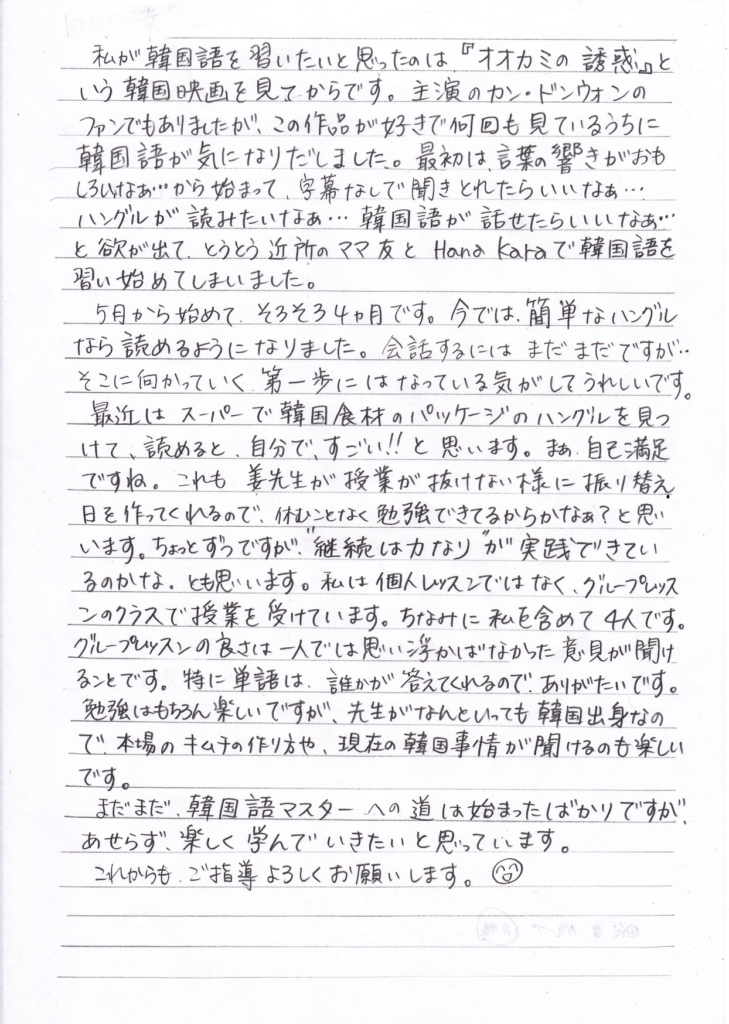 私が韓国語を習いたいと思ったのは『オオカミの誘惑』と
いう韓国映画を見てからです。主演のカン・ドンウォンの
ファンでもありましたが、この作品が好きで何回も見ているうちに
韓国語が気になりだしました。最初は、言葉の響きがおも
しろいなぁ…から始まって、字幕なしで聞きとれたらいいなぁ…
ハングルが読みたいなぁ…韓国語が話せたらいいなぁ…
と欲が出て、とうとう近所のママ友と Hana Karaで韓国語を
習い始めてしまいました。
5月から始めて、そろそろ4ヵ月です。今では、簡単なハングル
なら読めるようになりました。会話するにはまだまだですが…
そこに向かっていく第一歩にはなっている気がしてうれしいです。
最近はスーパーで韓国食材のパッケージのハングルを見つ
けて、読めると、自分で、すごい!!と思います。まぁ、自己満足
ですね。これも姜先生が授業が抜けない様に振り替え
日を作ってくれるので、休むことなく勉強できてるからかなぁ?と思
います。ちょっとずつですが、"継続は力なり"が実践できてい
るのかな。とも思います。私は個人レッスンではなく、グループレッス
ンのクラスで授業を受けています。ちなみに私を含めて4人です。
グループレッスンの良さは一人では思い浮かばなかった意見が聞け
ることです。特に単語は、誰かが答えてくれるので、ありがたいです。
勉強はもちろん楽しいですが、先生がなんといっても韓国出身なの
で、本場のキムチの作り方や、現在の韓国事情が聞けるのも楽しい
です。
まだまだ、韓国語マスターへの道は始まったばかりですが、
あせらず、楽しく学んでいきたいと思っています。
これからも、ご指導よろしくお願いします。